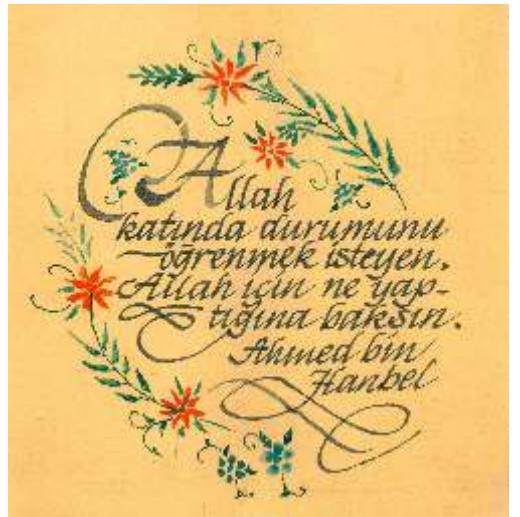 Allah
katında durumunu
öğrenmek isteyen,
Allah için ne yap-
tığına baksın.
Ahmed bin
Hanbel